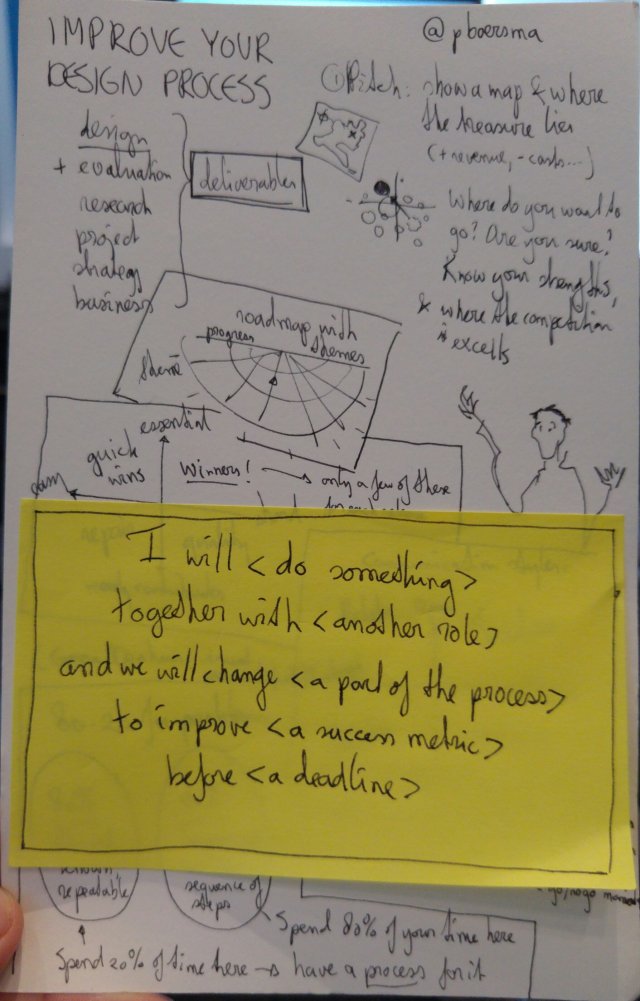 IMPROVE YOUR
DESIGN PROCESS
@pboersma
design
+ evaluation
research
project
strategy
business
deliverables
① Pitch: show a map & where
the treasure lies
(+ revenue, - costs...)
Where do you want to
go? Are you sure?
Know your strengths,
& where the competition
excells
roadmap with
themes
progress
theme
essential
quick
wins
easy
Winners! → only a few of these
I will <do something>
together with <another role>
and we will change <a part of the process>
to improve <a success metric>
before <a deadline>
known,
repeatable
sequence of
steps
go/nogo
Spend 80% of your time here
Spend 20% of time here → have a process for it